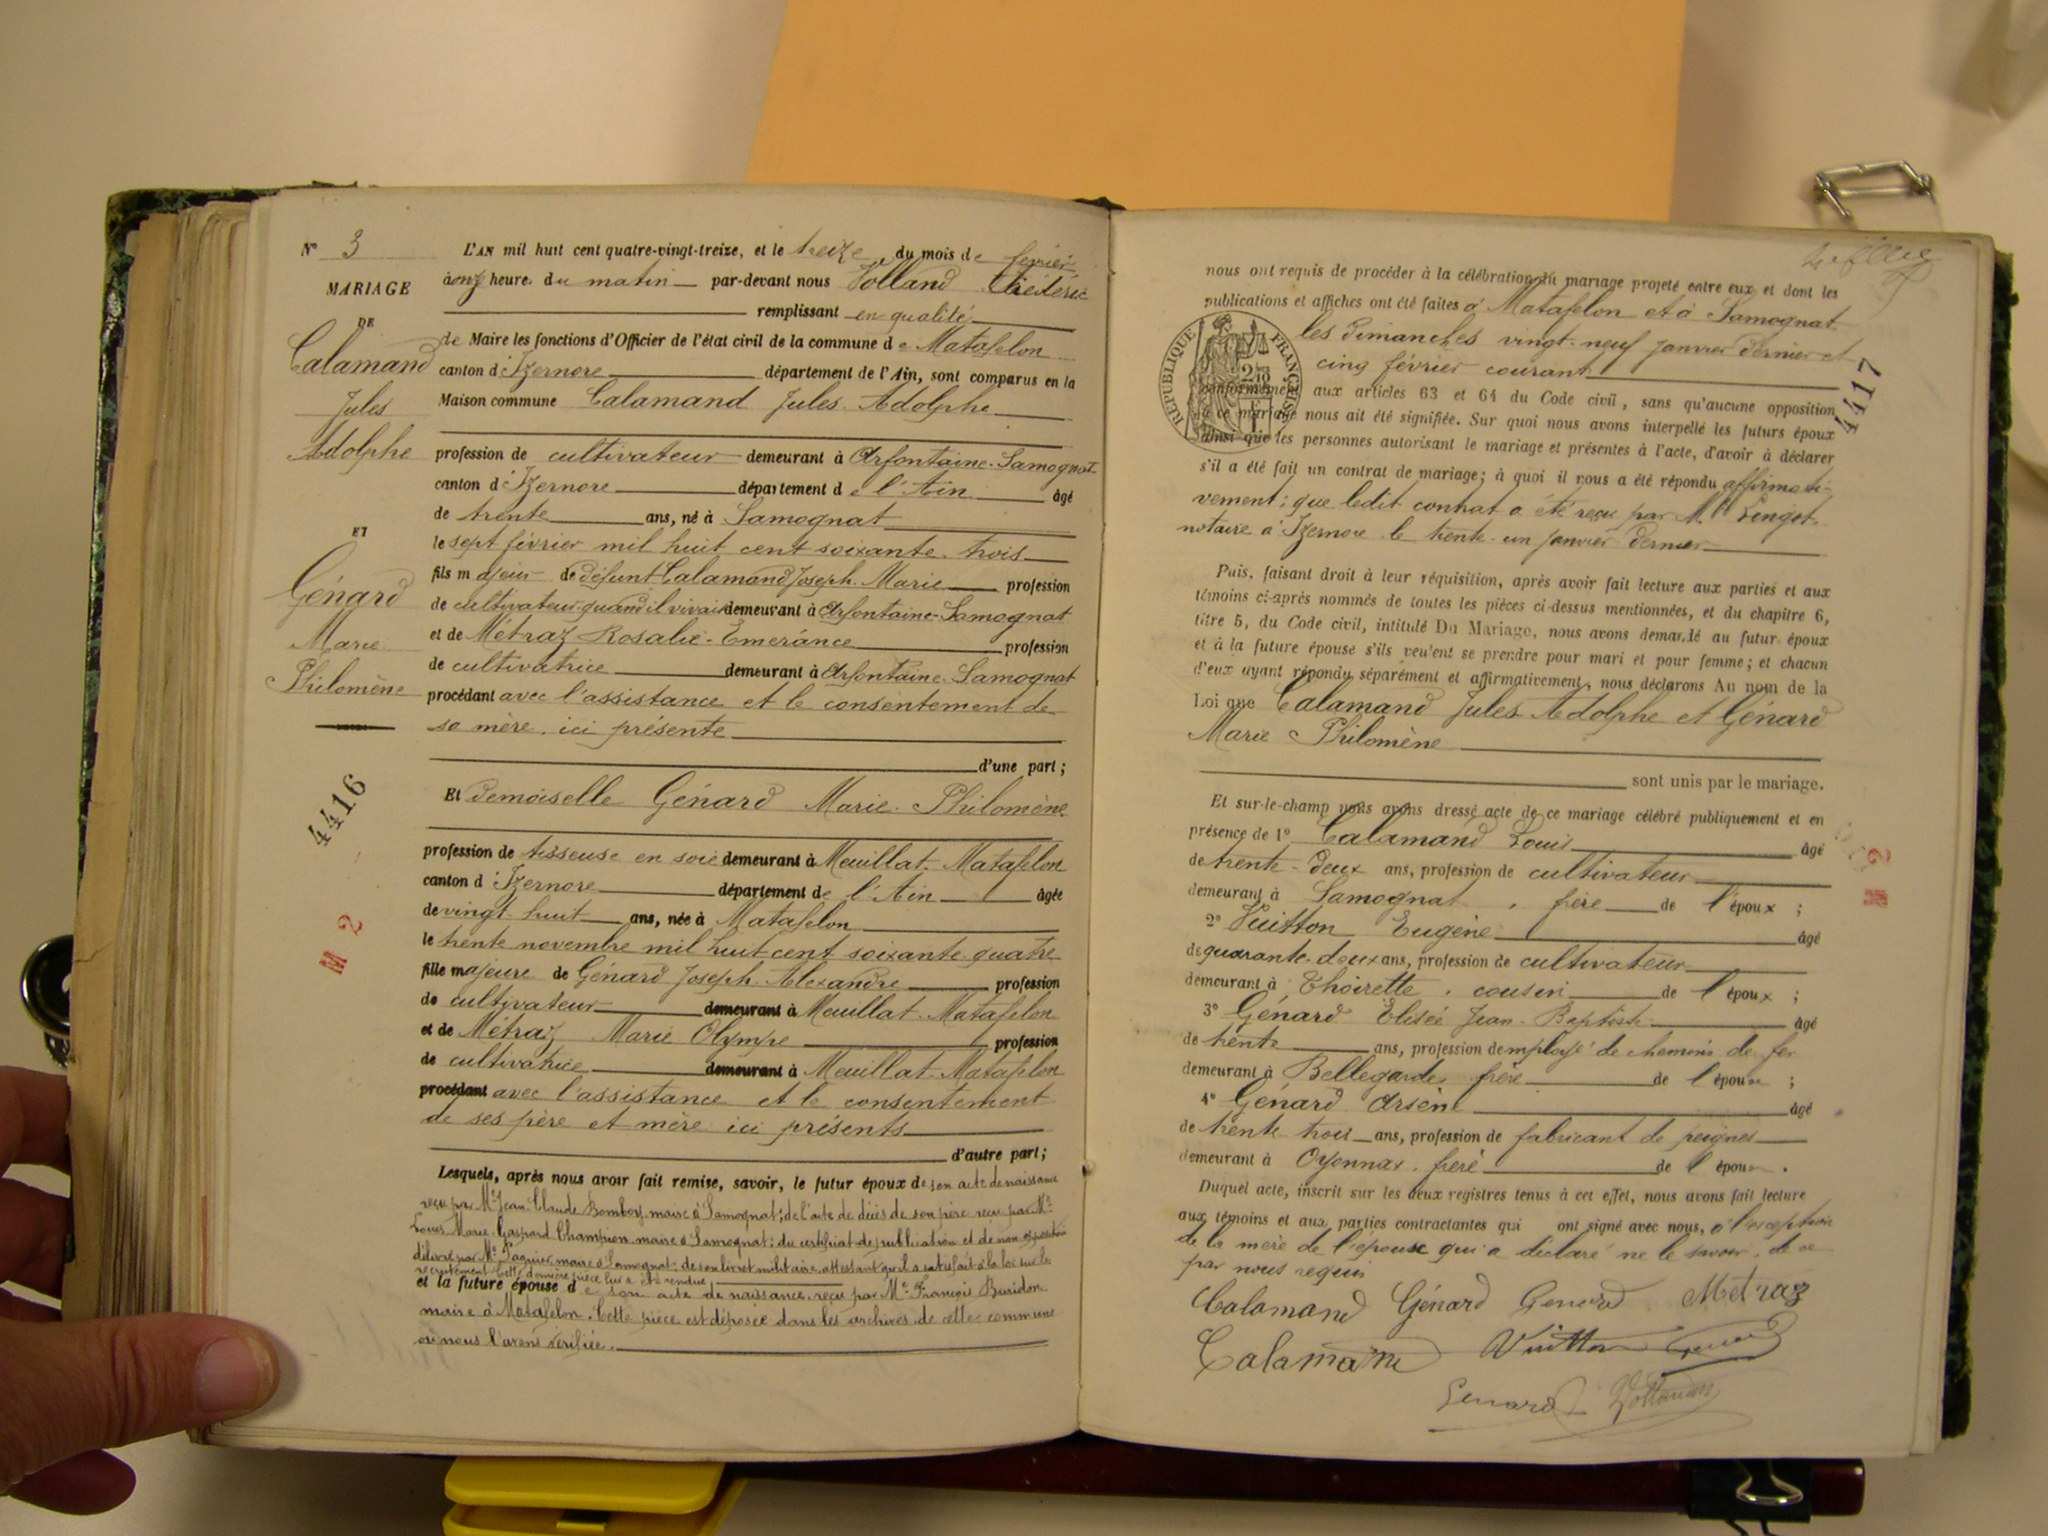 N° 3
MARIAGE
DE
Calamand
Jules
Adolphe
ET
Génard
Marie
Philomène
4416
M 2
L'AN mil huit cent quatre-vingt-treize, et le treize du mois de février
à onze heure du matin par-devant nous Volland
remplissant en qualité
de Maire les fonctions d'Officier de l'état civil de la commune de Matafelon
canton d'Izernore département de l'Ain, sont comparus en la
Maison commune Calamand Jules Adolphe
profession de cultivateur demeurant à Arfontaine-Samognat
canton d'Izernore département de l'Ain âgé
de trente ans, né à Samognat
le sept février mil huit cent soixante-trois
fils majeur de défunt Calamand Joseph Marie profession
de cultivateur quand il vivait demeurant à Arfontaine-Samognat
et de Métraz Rosalie-Emerance profession
de cultivatrice demeurant à Arfontaine-Samognat
procédant avec l'assistance et le consentement de
sa mère ici présente
d'une part ;
Et demoiselle Génard Marie Philomène
profession de tisseuse en soie demeurant à Meuillat-Matafelon
canton d'Izernore département de l'Ain âgée
de vingt-huit ans, née à Matafelon
le trente novembre mil huit cent soixante-quatre
fille majeure de Génard Joseph Alexandre profession
de cultivateur demeurant à Meuillat-Matafelon
et de Métraz Marie Olympe profession
de cultivatrice demeurant à Meuillat-Matafelon
procédant avec l'assistance et le consentement
de ses père et mère ici présents
d'autre part ;
Lesquels, après nous avoir fait remise, savoir, le futur époux de son acte de naissance
reçu par Mr Jean-Claude maire à Samognat ; de l'acte de décès de son père reçu par Mr
Louis Marie Gaspard Champion maire à Samognat ; du certificat de publication et de non opposition
délivré par Mr maire à Samognat ; de son livret militaire attestant qu'il a satisfait à la loi sur le
recrutement. Cette dernière pièce lui a été rendue ;
et la future épouse de son acte de naissance reçu par Mr François
maire à Matafelon. Cette pièce est déposée dans les archives de cette commune
où nous l'avons vérifiée.
nous ont requis de procéder à la célébration du mariage projeté entre eux et dont les
publications et affiches ont été faites à Matafelon et à Samognat
les dimanches vingt-neuf janvier dernier et
cinq février courant
RÉPUBLIQUE FRANÇAISE
4417
conformément aux articles 63 et 64 du Code civil, sans qu'aucune opposition
à ce mariage nous ait été signifiée. Sur quoi nous avons interpellé les futurs époux
ainsi que les personnes autorisant le mariage et présentes à l'acte, d'avoir à déclarer
s'il a été fait un contrat de mariage ; à quoi il nous a été répondu affirmati-
vement ; que ledit contrat a été reçu par Me
notaire à Izernore le trente-un janvier dernier
Puis, faisant droit à leur réquisition, après avoir fait lecture aux parties et aux
témoins ci-après nommés de toutes les pièces ci-dessus mentionnées, et du chapitre 6,
titre 5, du Code civil, intitulé Du Mariage, nous avons demandé au futur époux
et à la future épouse s'ils veulent se prendre pour mari et pour femme ; et chacun
d'eux ayant répondu séparément et affirmativement, nous déclarons Au nom de la
Loi que Calamand Jules Adolphe et Génard
Marie Philomène
sont unis par le mariage.
Et sur-le-champ nous avons dressé acte de ce mariage célébré publiquement et en
présence de 1° Calamand Louis âgé
de trente-deux ans, profession de cultivateur
demeurant à Samognat, frère de l'époux ;
2° Vuitton Eugène âgé
de quarante-deux ans, profession de cultivateur
demeurant à Thoirette, cousin de l'époux ;
3° Génard Elisée Jean-Baptiste âgé
de trente ans, profession d'employé de chemins de fer
demeurant à Bellegarde, frère de l'épouse ;
4° Génard Arsène âgé
de trente-trois ans, profession de fabricant de peignes
demeurant à Oyonnax, frère de l'épouse.
Duquel acte, inscrit sur les deux registres tenus à cet effet, nous avons fait lecture
aux témoins et aux parties contractantes qui ont signé avec nous, à l'exception
de la mère de l'épouse qui a déclaré ne le savoir, de ce
par nous requis
Calamand Génard Genard Métraz
Calamand Vuitton
Genard Volland
M 2